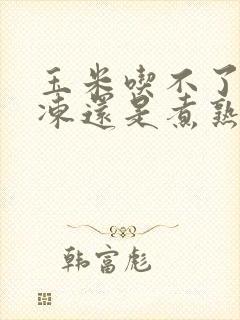 玉米喫不了
凍還是煮熟
韩富彪